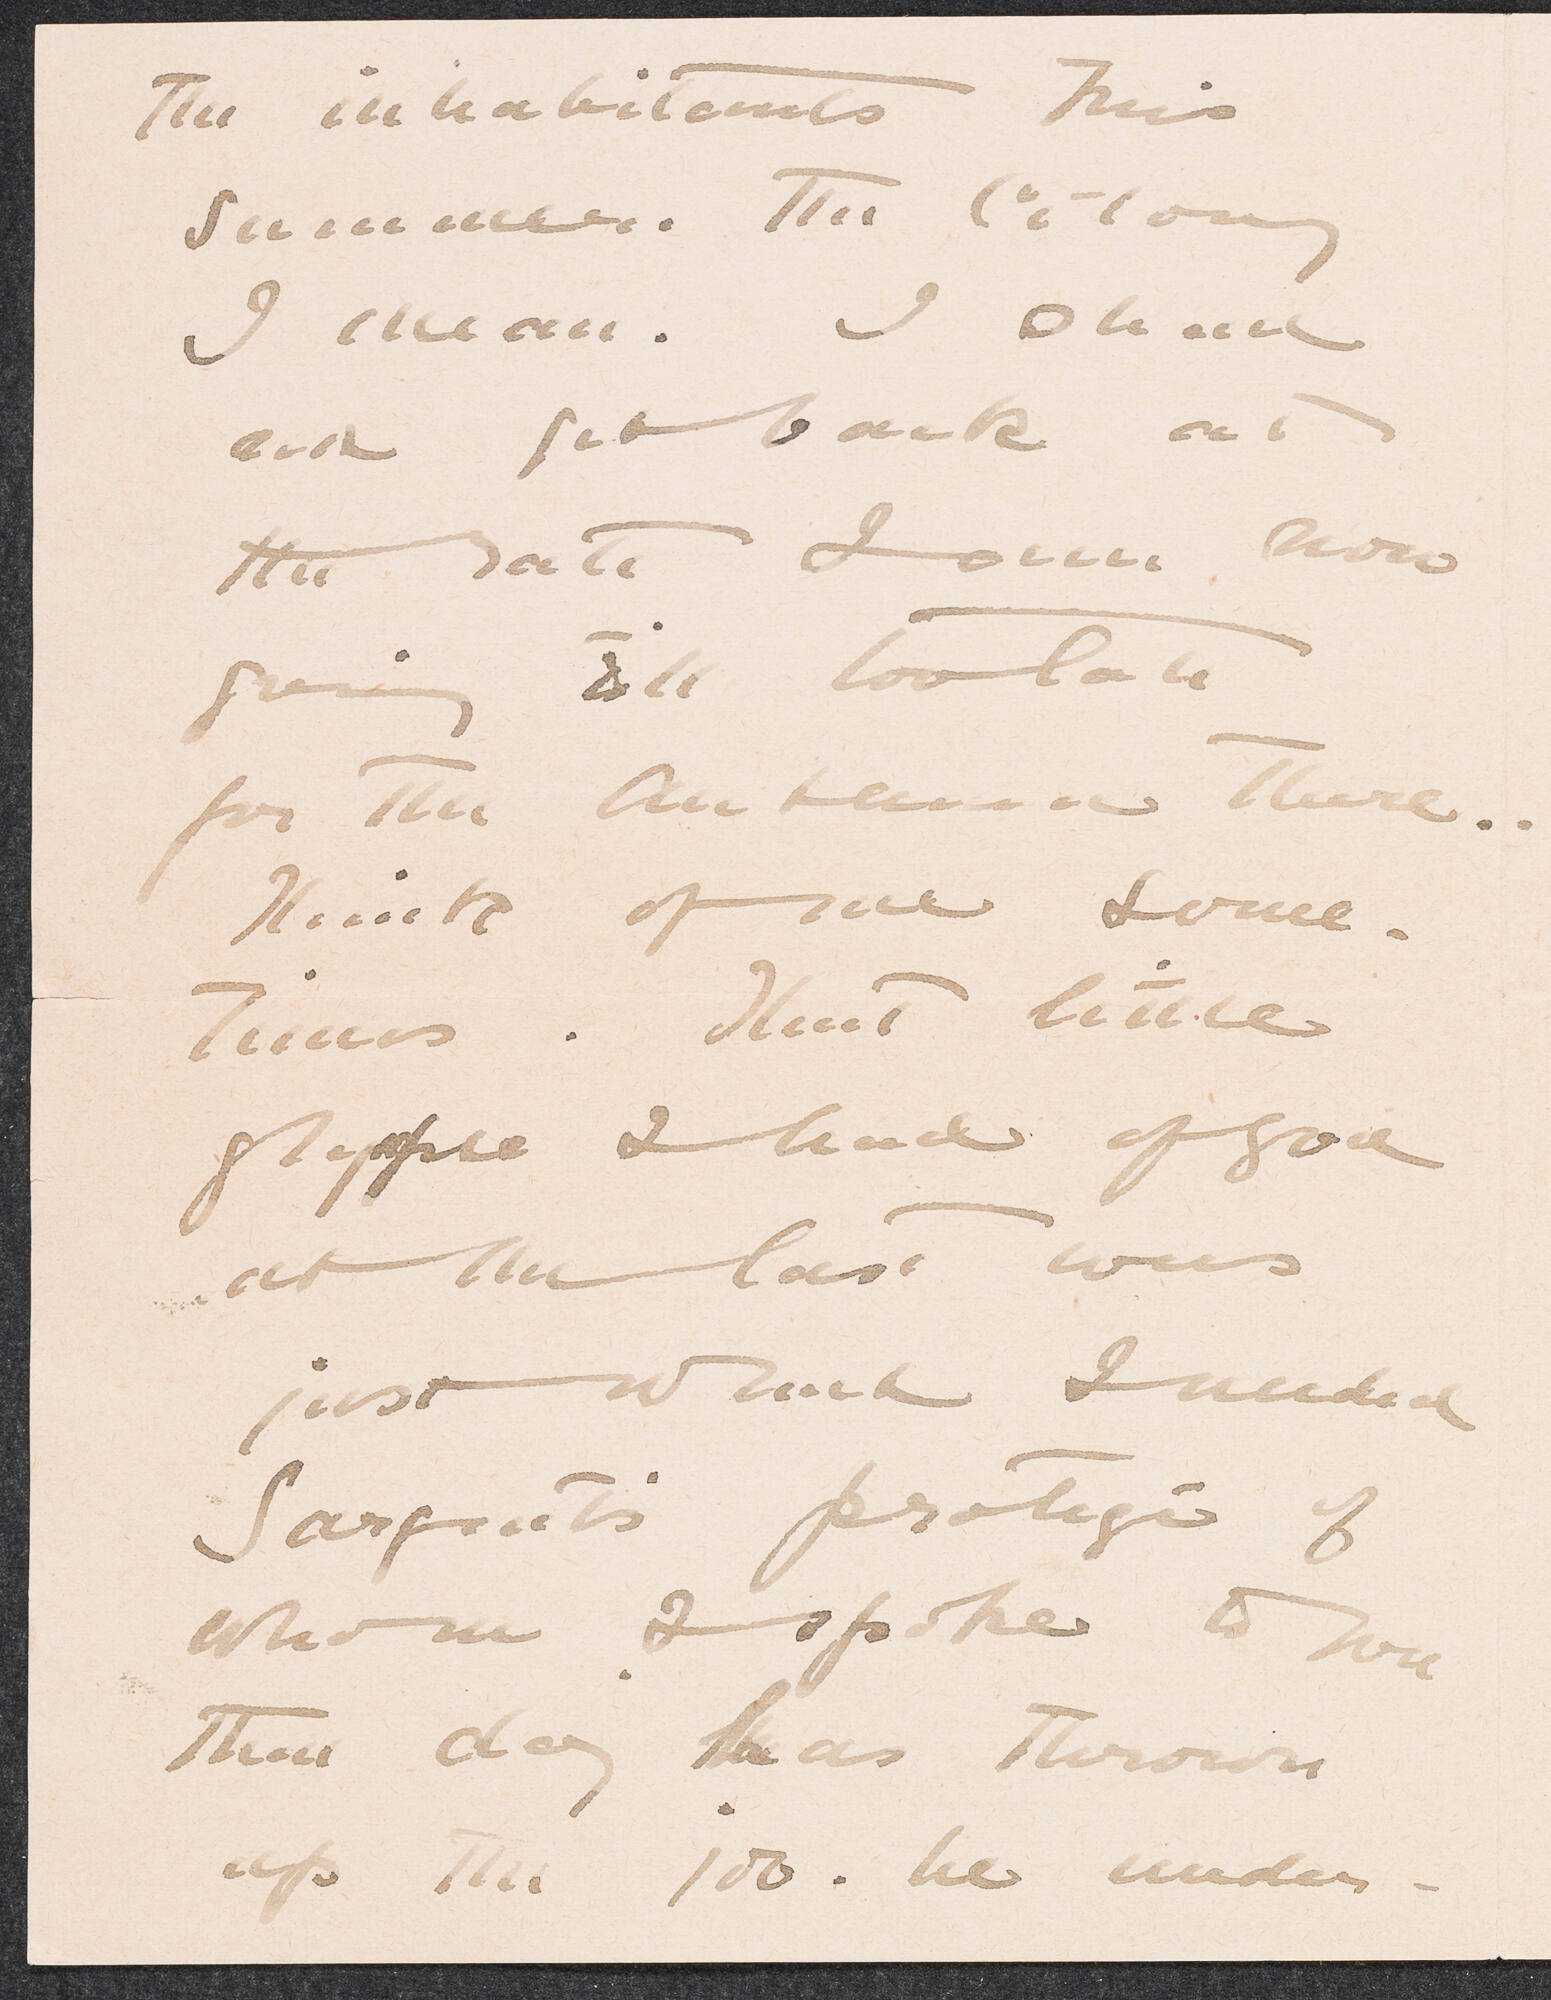 The inhabitants this
summer. The Colony
I mean. I shall
not get back at
the rate I am now
going till too late
for the Autumn there..
Think of me some-
times. That little
glimpse I had of you
at the last was
just what I needed
Sargent's protegé of
whom I spoke to you
that day has thrown
up the job. he under-